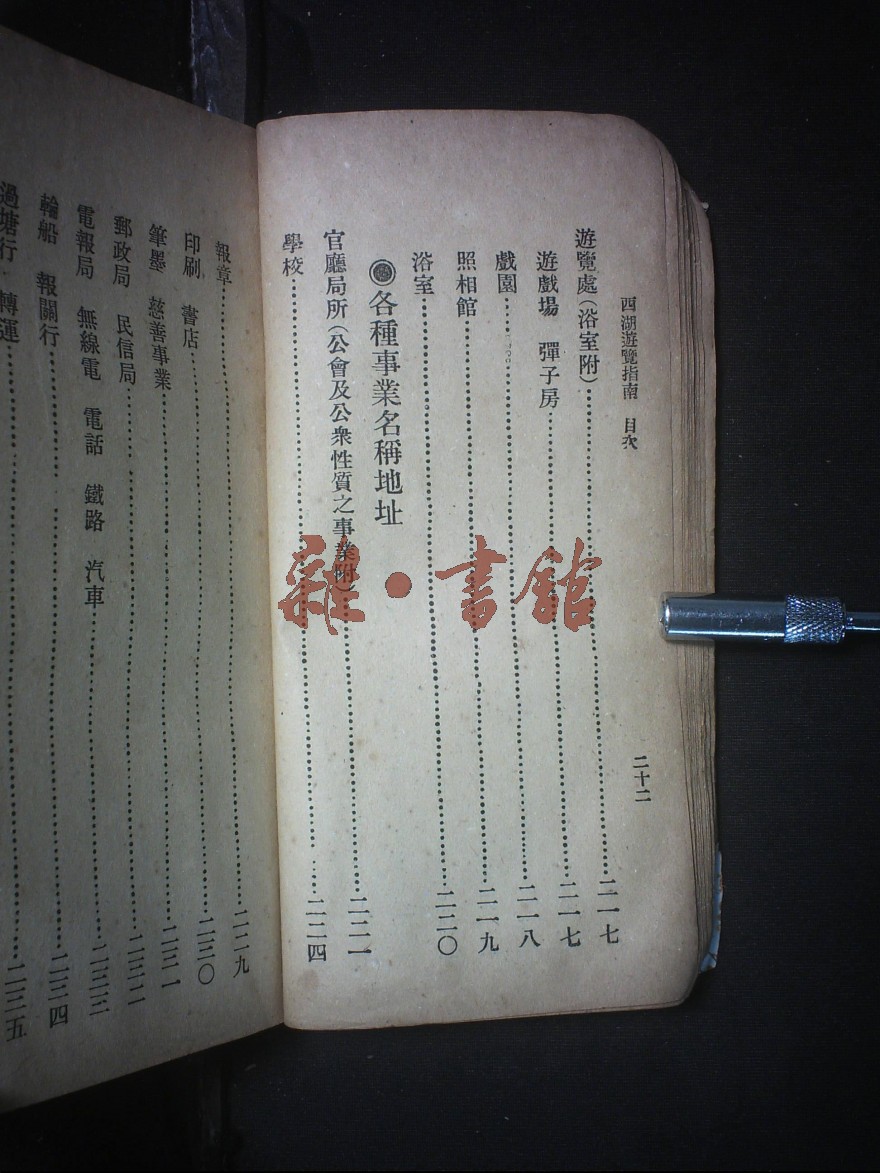 西湖遊覽指南 目次 二十二
遊覽處(浴室附)二一七
遊戲場 彈子房二一七
戲園二一八
照相館二一九
浴室二二〇
◉各種事業名稱地址
官廳局所(公會及公衆性質之事業附)二二一
學校二二四
報章二二九
印刷 書店二三〇
筆墨 慈善事業二三一
郵政局 民信局二三二
電報局 無線電 電話 鐵路 汽車二三三
輪船 報關行二三四
過塘行 轉運二三五
雜·書館